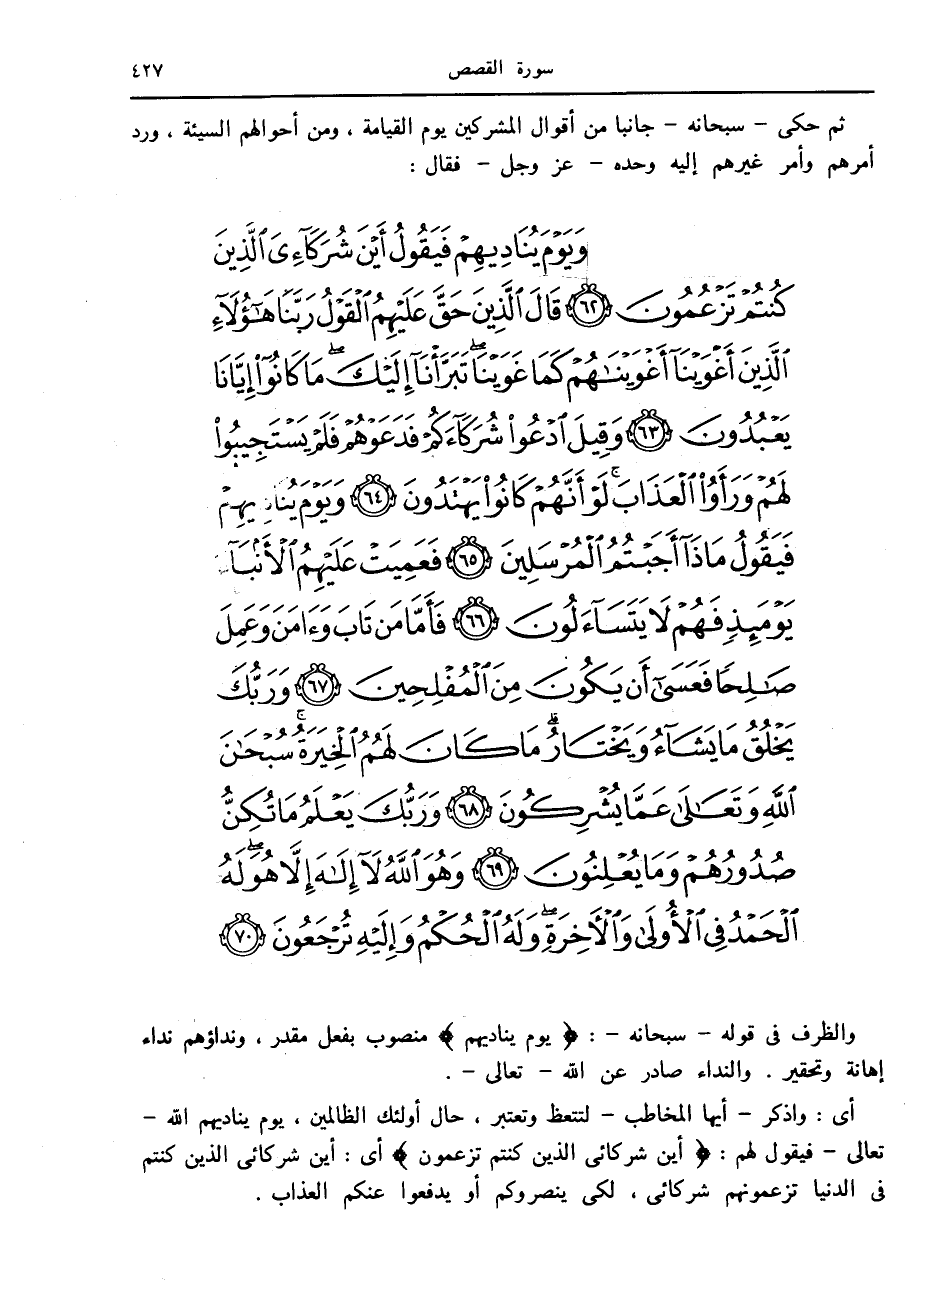 سورة القصص ٤٢٧
ثم حكى – سبحانه – جانبا من أقوال المشركين يوم القيامة ، ومن أحوالهم السيئة ، ورد
أمرهم وأمر غيرهم إليه وحده – عز وجل – فقال :
وَيَوْمَ يُنَادِيهِمْ فَيَقُولُ أَيْنَ شُرَكَآءِىَ ٱلَّذِينَ
كُنتُمْ تَزْعُمُونَ ﴿٦٢﴾ قَالَ ٱلَّذِينَ حَقَّ عَلَيْهِمُ ٱلْقَوْلُ رَبَّنَا هَٰٓؤُلَآءِ
ٱلَّذِينَ أَغْوَيْنَآ أَغْوَيْنَٰهُمْ كَمَا غَوَيْنَا ۖ تَبَرَّأْنَآ إِلَيْكَ ۖ مَا كَانُوٓا۟ إِيَّانَا
يَعْبُدُونَ ﴿٦٣﴾ وَقِيلَ ٱدْعُوا۟ شُرَكَآءَكُمْ فَدَعَوْهُمْ فَلَمْ يَسْتَجِيبُوا۟
لَهُمْ وَرَأَوُا۟ ٱلْعَذَابَ ۚ لَوْ أَنَّهُمْ كَانُوا۟ يَهْتَدُونَ ﴿٦٤﴾ وَيَوْمَ يُنَادِيهِمْ
فَيَقُولُ مَاذَآ أَجَبْتُمُ ٱلْمُرْسَلِينَ ﴿٦٥﴾ فَعَمِيَتْ عَلَيْهِمُ ٱلْأَنۢبَآءُ
يَوْمَئِذٍ فَهُمْ لَا يَتَسَآءَلُونَ ﴿٦٦﴾ فَأَمَّا مَن تَابَ وَءَامَنَ وَعَمِلَ
صَٰلِحًا فَعَسَىٰٓ أَن يَكُونَ مِنَ ٱلْمُفْلِحِينَ ﴿٦٧﴾ وَرَبُّكَ
يَخْلُقُ مَا يَشَآءُ وَيَخْتَارُ ۗ مَا كَانَ لَهُمُ ٱلْخِيَرَةُ ۚ سُبْحَٰنَ
ٱللَّهِ وَتَعَٰلَىٰ عَمَّا يُشْرِكُونَ ﴿٦٨﴾ وَرَبُّكَ يَعْلَمُ مَا تُكِنُّ
صُدُورُهُمْ وَمَا يُعْلِنُونَ ﴿٦٩﴾ وَهُوَ ٱللَّهُ لَآ إِلَٰهَ إِلَّا هُوَ ۖ لَهُ
ٱلْحَمْدُ فِى ٱلْأُولَىٰ وَٱلْأَخِرَةِ ۖ وَلَهُ ٱلْحُكْمُ وَإِلَيْهِ تُرْجَعُونَ ﴿٧٠﴾
والظرف فى قوله – سبحانه – : ﴿ يوم يناديهم ﴾ منصوب بفعل مقدر ، ونداؤهم نداء
إهانة وتحقير . والنداء صادر عن الله – تعالى – .
أى : واذكر – أيها المخاطب – لتتعظ وتعتبر ، حال أولئك الظالمين ، يوم يناديهم الله –
تعالى – فيقول لهم : ﴿ أين شركائى الذين كنتم تزعمون ﴾ أى : أين شركائى الذين كنتم
فى الدنيا تزعمونهم شركائى ، لكى ينصروكم أو يدفعوا عنكم العذاب .